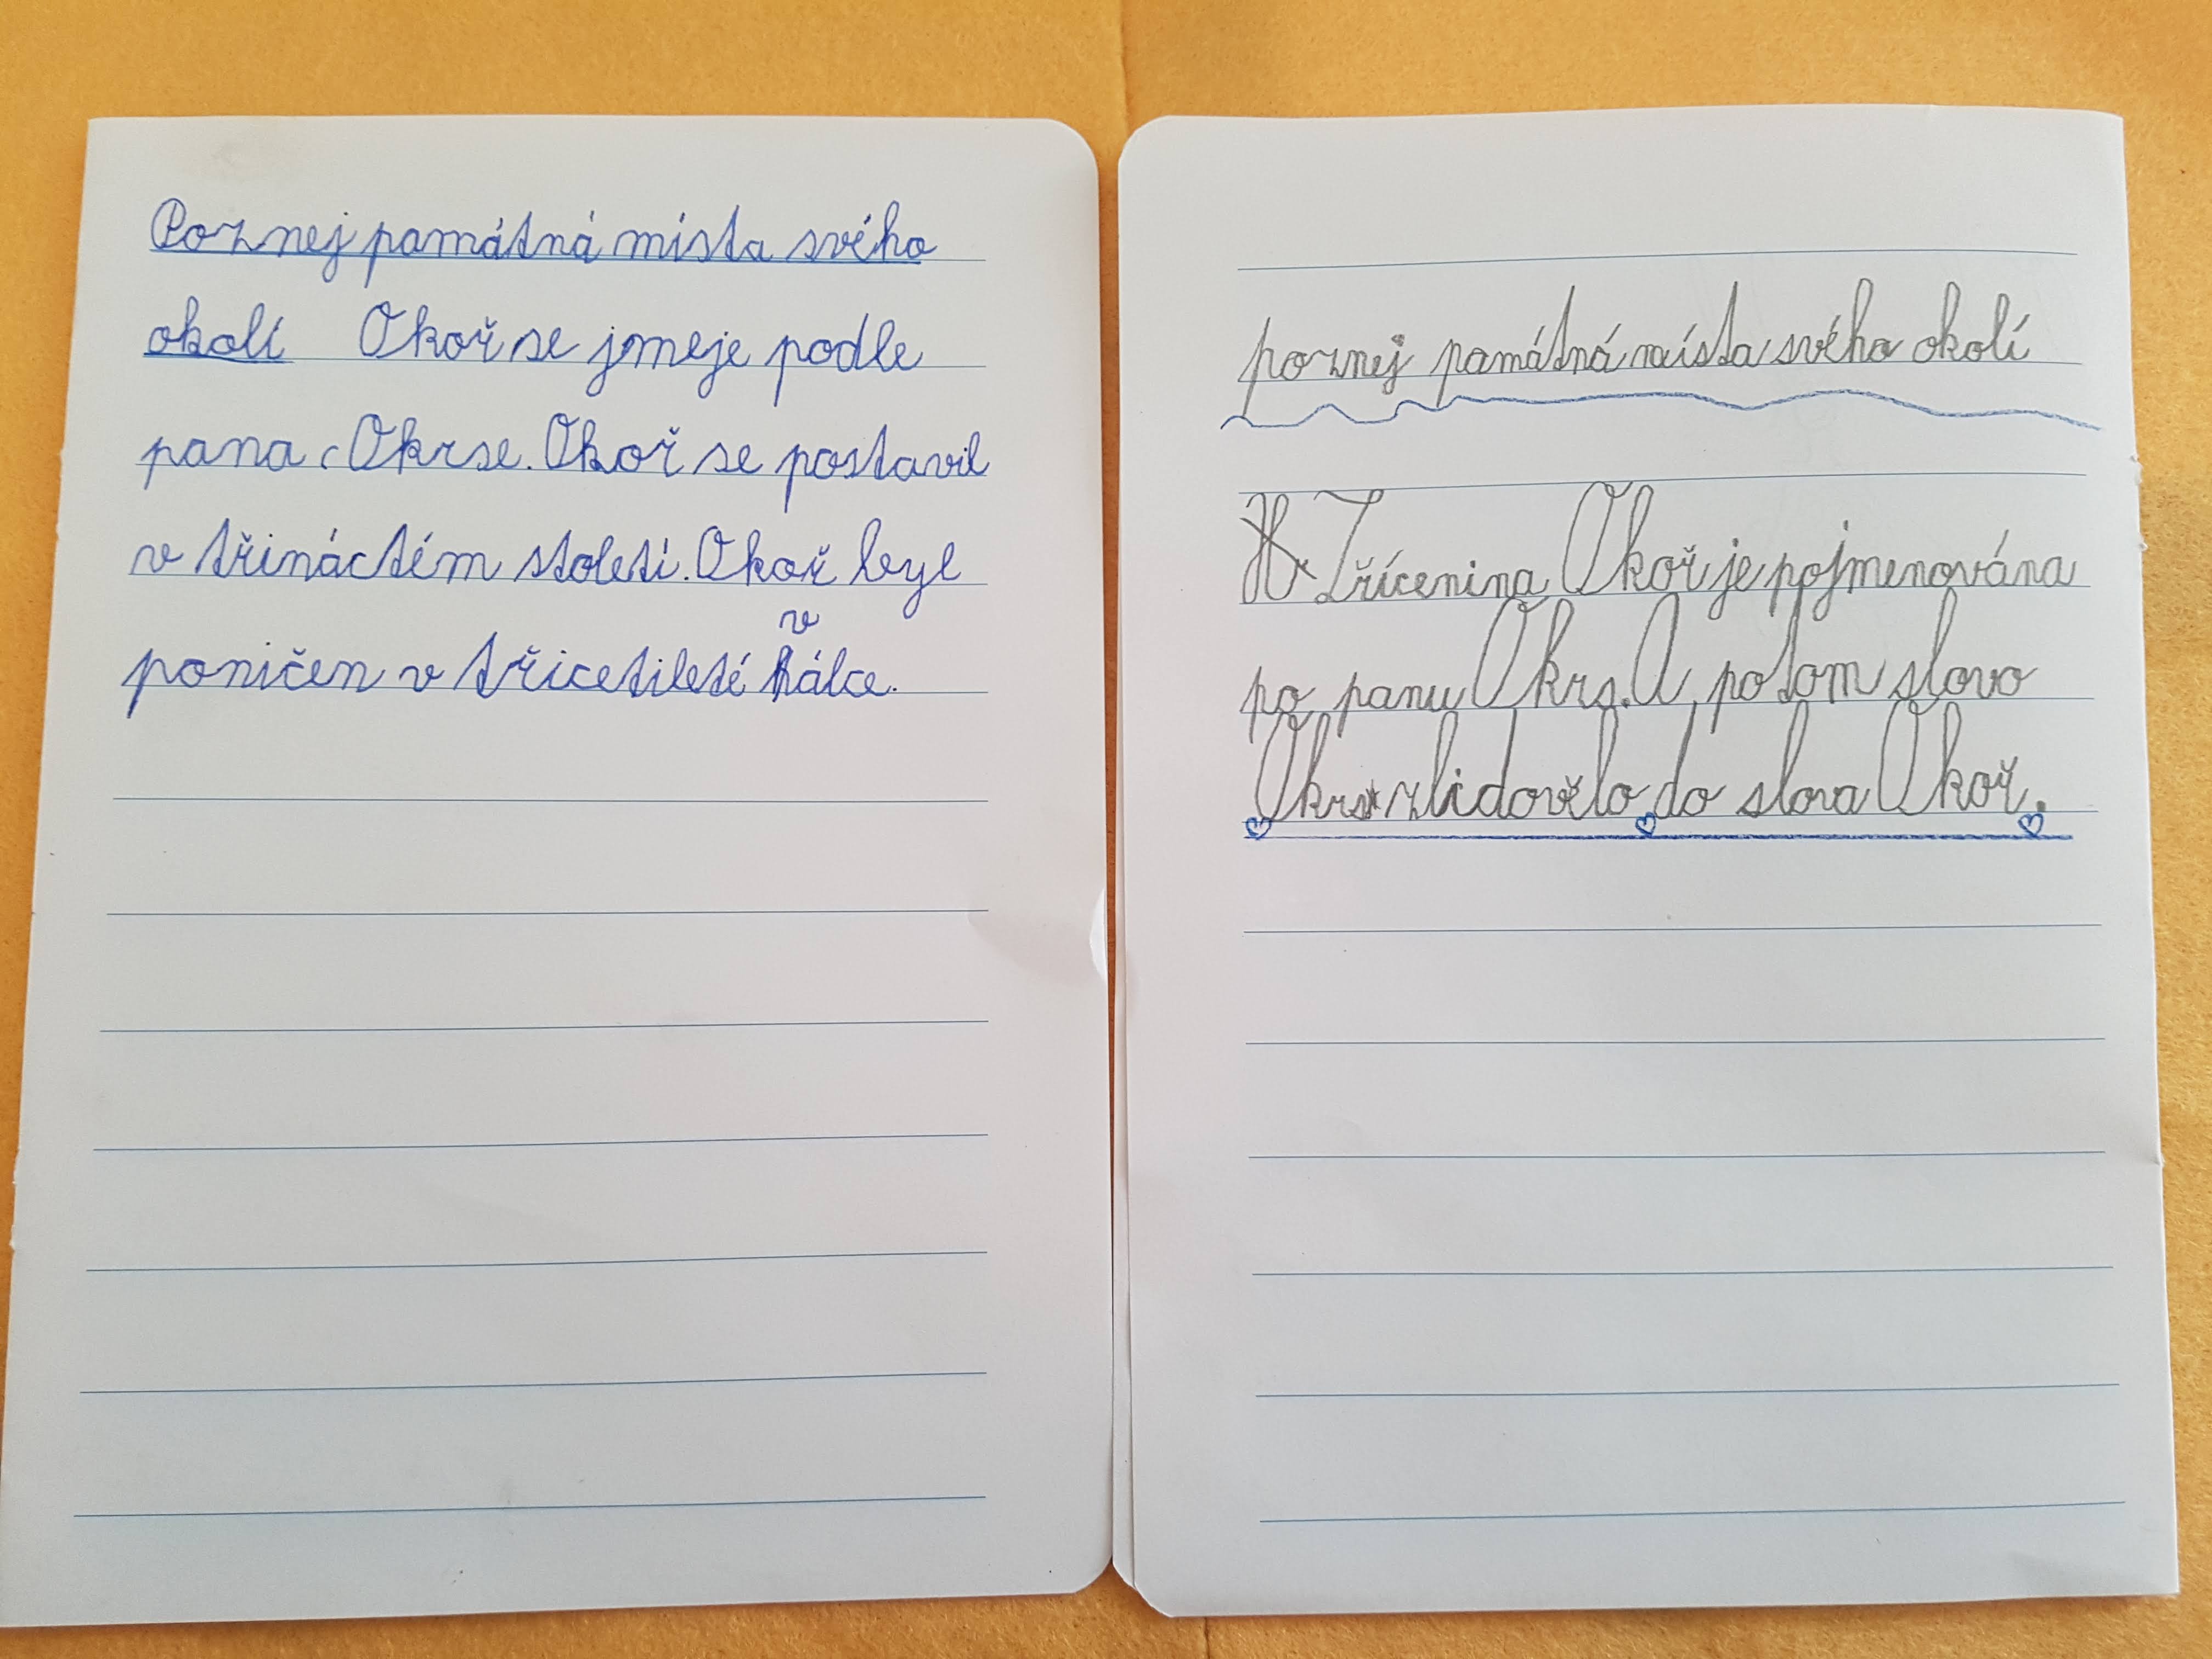 Poznej památná místa svého
okolí Okoř se jmeje podle
pana Okrse. Okoř se postavil
v třináctém stoleti. Okoř byl
poničen v třicetileté válce.
poznej památná místa svého okolí
Zřícenina Okoř je pojmenována
po panu Okrs. A potom slovo
Okrs zlidovělo do slova Okoř.